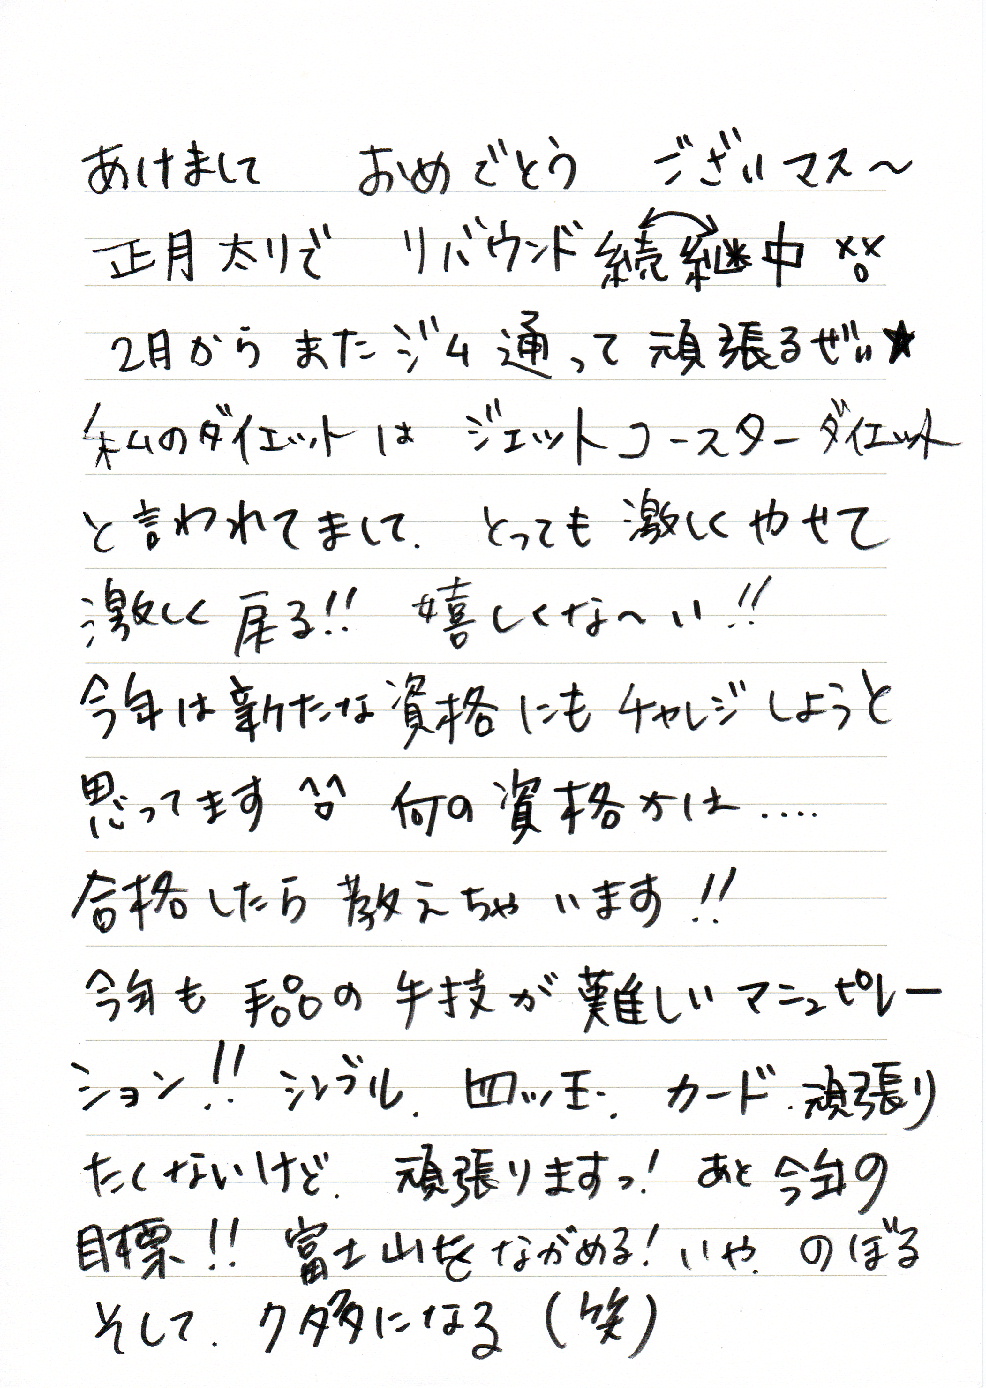 あけまして おめでとう ございマス～
正月太りで リバウンド 続継中 xx o
2月から またジム通って 頑張るぜぃ★
私のダイエットは ジェットコースターダイエット
と言われてまして. とっても激しくやせて
激しく 戻る!! 嬉しくな～い!!
今年は新たな資格にもチャレジしようと
思ってます ^o^ 何の資格かは....
合格したら 教えちゃいます!!
今年も 手品の手技が難しいマニュピレー
ション!! シンブル. 四ッ玉. カード.頑張り
たくないけど. 頑張りますっ! あと今年の
目標!! 富士山をながめる! いや. のぼる
そして. になる (笑)